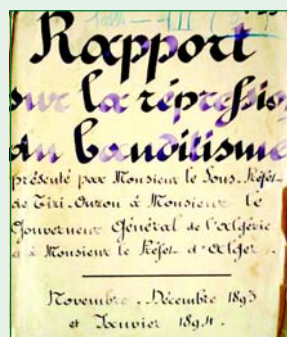 Rapport
sur la répression
du banditisme
présenté par Monsieur le Sous-Préfet
de Tizi-Ouzou à Monsieur le
Gouverneur Général de l'Algérie
et à Monsieur le Préfet d'Alger.
Novembre, Décembre 1893
et Janvier 1894.